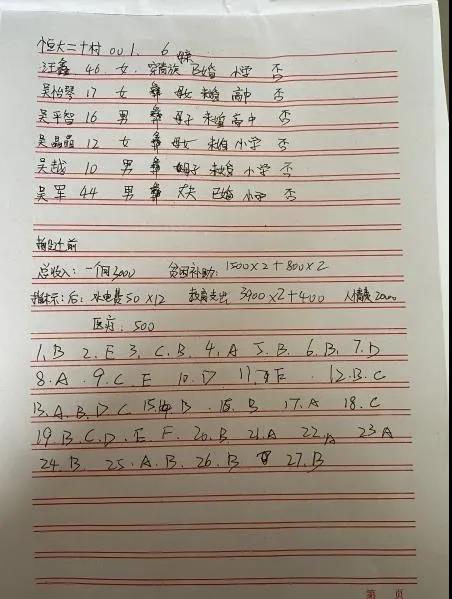 恒大二十村 001. 6
汪鑫. 46. 女. 穿青族 已婚 小学 否
吴怡琴 17 女 彝 母女 未婚 高中 否
吴平智 16 男 彝 母子 未婚 高中 否
吴晶晶 12 女 彝 母女 未婚 小学 否
吴越 10 男 彝 母子 未婚 小学 否
吴军 44 男 彝 丈夫 已婚 小学 否
搬迁前
总收入: 一个月3000 贫困补助: 1500×2+800×2
后: 水电费50×12 教育支出 3900×2+400 人情费2000
医疗: 500
1. B 2. E 3. C. B. 4. A 5. B. 6. B. 7. D
8. A . 9. C. E 10. D 11. E . 12. B. C
13. A. B. D. C 15. D . 16. B 17. A 18. C
19. B. C. D. E. F. 20. B. 21. A 22. A 23 A
24. B. 25. A. B. 26. B 27. B
第 页